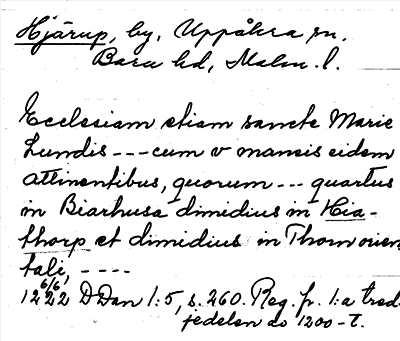 Hjärup, by, Uppåkra sn.
Bara hd, Malm. l.
Ecclesiam etiam sancte Marie
Lundis --- cum v mansis eidem
attinentibus, quorum --- quartus
in Biarhusa dimidius in Hia-
thorp et dimidius in Thorn orien
tali, ----
6/6,
1222 DDan 1:5, s. 260. Reg. fr. 1:a tred-
jedelen av 1200-t.